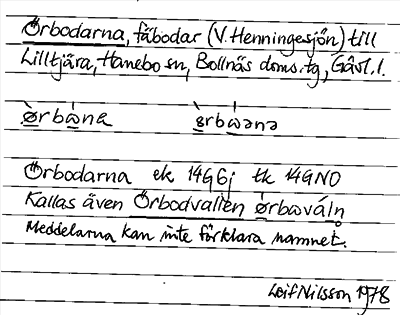 Örbodarna, fäbodar (V. Henningesjön) till
Lilltjära, Hanebo sn, Bollnäs doms.tg, Gävl. l.
ø̀rbὼna ø̀rbὼənə
Örbodarna ek 14G6j tk 14GNO
Kallas även Örbodvallen ørbωváln̥
Meddelarna kan inte förklara namnet.
Leif Nilsson 1978